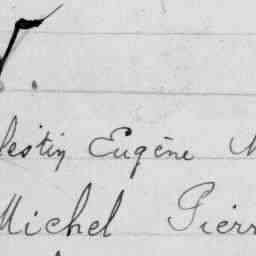 lestin Eugène
Michel Pierr